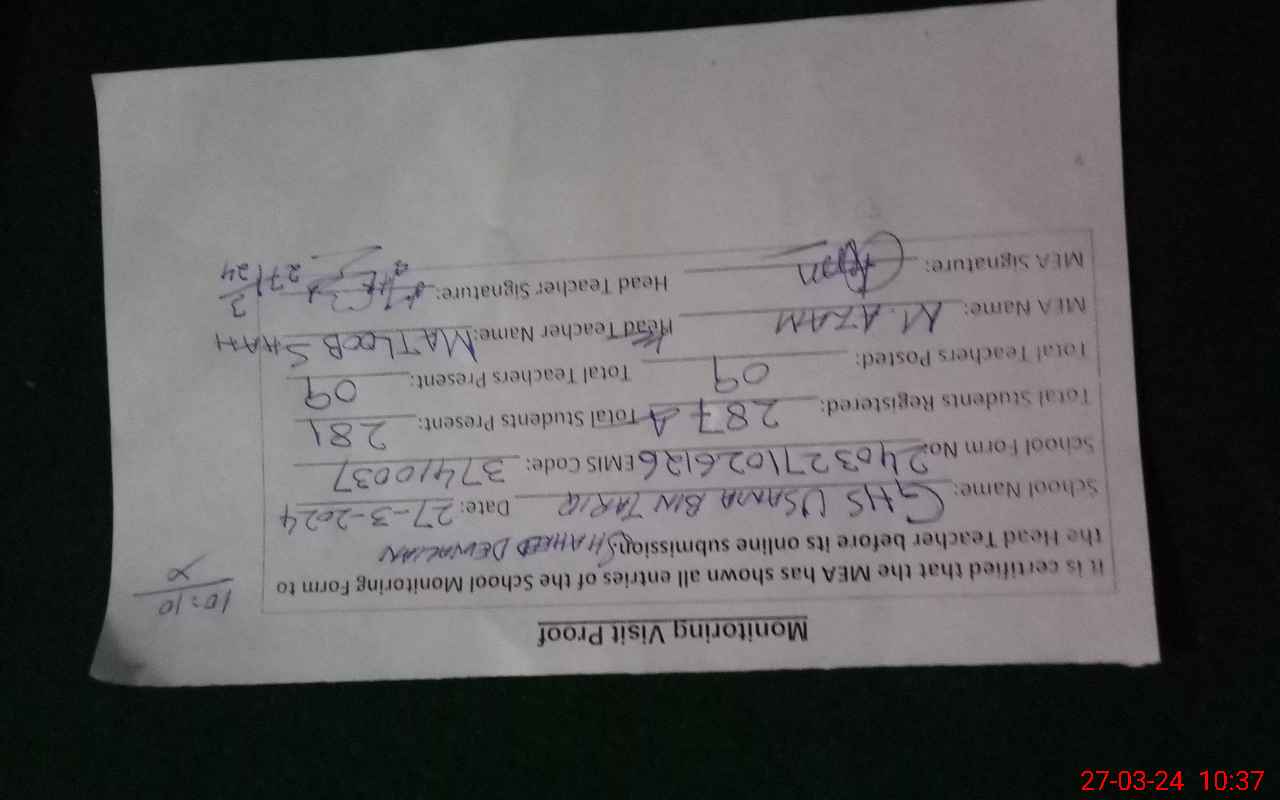 Monitoring Visit Proof
10:10
It is certified that the MEA has shown all entries of the School Monitoring Form to
the Head Teacher before its online submission. SHAHEED DEWALIAN
School Name: GHS USAMA BIN TARIQ Date: 27-3-2024
School Form No: 2403271026126 EMIS Code: 37410037
Total Students Registered: 287 Total Students Present: 281
Total Teachers Posted: 09 Total Teachers Present: 09
MEA Name: M. AZAM Head Teacher Name: MATLOOB SHAH
MEA Signature: Head Teacher Signature: 27/3/24
27-03-24 10:37